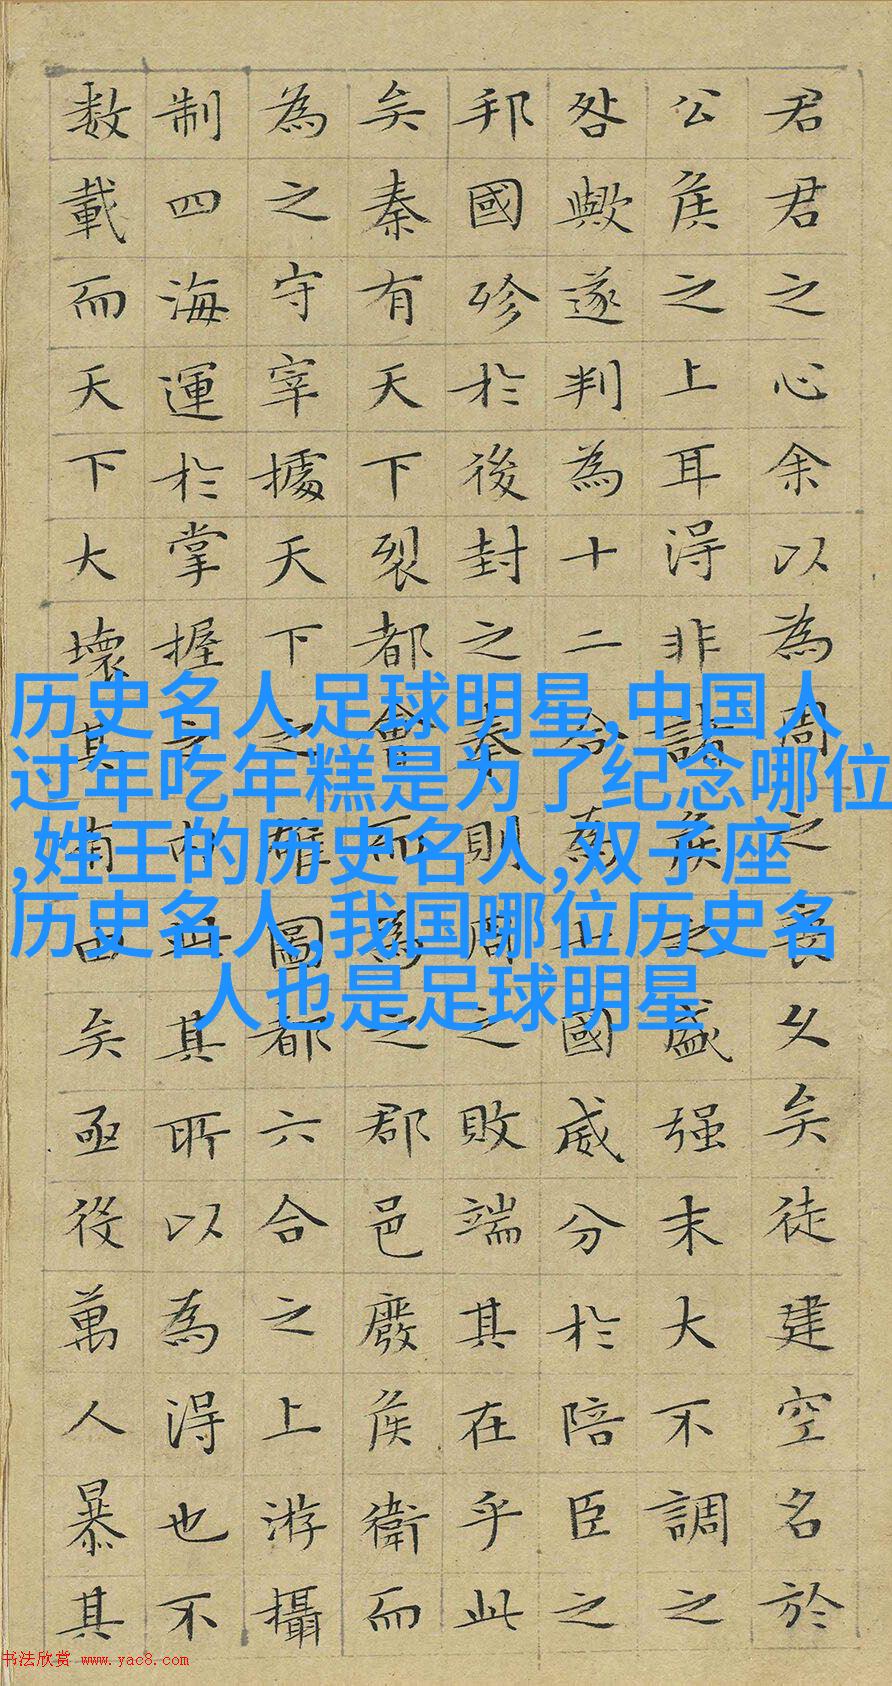 君君之心余以為周之喪久矣徒建空名於
公侯之上耳得非諸侯之盛强末大不調之
咎歟遂判為十二合為七國威分於陪臣之
邦國殄於後封之秦則周之敗端其在乎此
矣秦有天下裂都會而為之郡邑廢侯衛而
為之守宰據天下之雄圖都六合之上游攝
制四海運於掌握之內此其所以為得也不
数載而天下大壞其有由矣亟役萬人暴其
历史名人足球明星,中国人
过年吃年糕是为了纪念哪位
,姓王的历史名人,双子座
历史名人,我国哪位历史名
人也是足球明星
书法欣赏 www.yac8.com